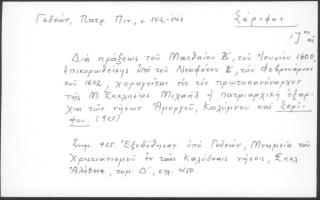 Γεδεών, Πατρ. Πιν., σ. 542-543
Σέριφος
17ος αι.
Διὰ πράξεως τοῦ Ματθαίου Β΄, τοῦ Ἰουνίου 1600,
ἐπικυρωθείσης ὑπὸ τοῦ Νεοφύτου Β΄, τὸν Φεβρουάριον
τοῦ 1602, χορηγεῖται εἰς τὸν πρωτοκανόναρχον
τῆς Μ. Ἐκκλησίας Μιχαὴλ ἡ πατριαρχικὴ ἐξαρ-
χία τῶν νήσων Ἀμοργοῦ, Καλύμνου καὶ Σερί-
φου. (425)
Σημ. 425. Ἐξεδόθησαν ὑπὸ Γεδεών, Μνημεῖα τοῦ
Χριστιανισμοῦ ἐν ταῖς Καλύδναις νήσοις, Ἐκκλ.
Ἀλήθεια, τομ. Δ΄, σελ. 450.